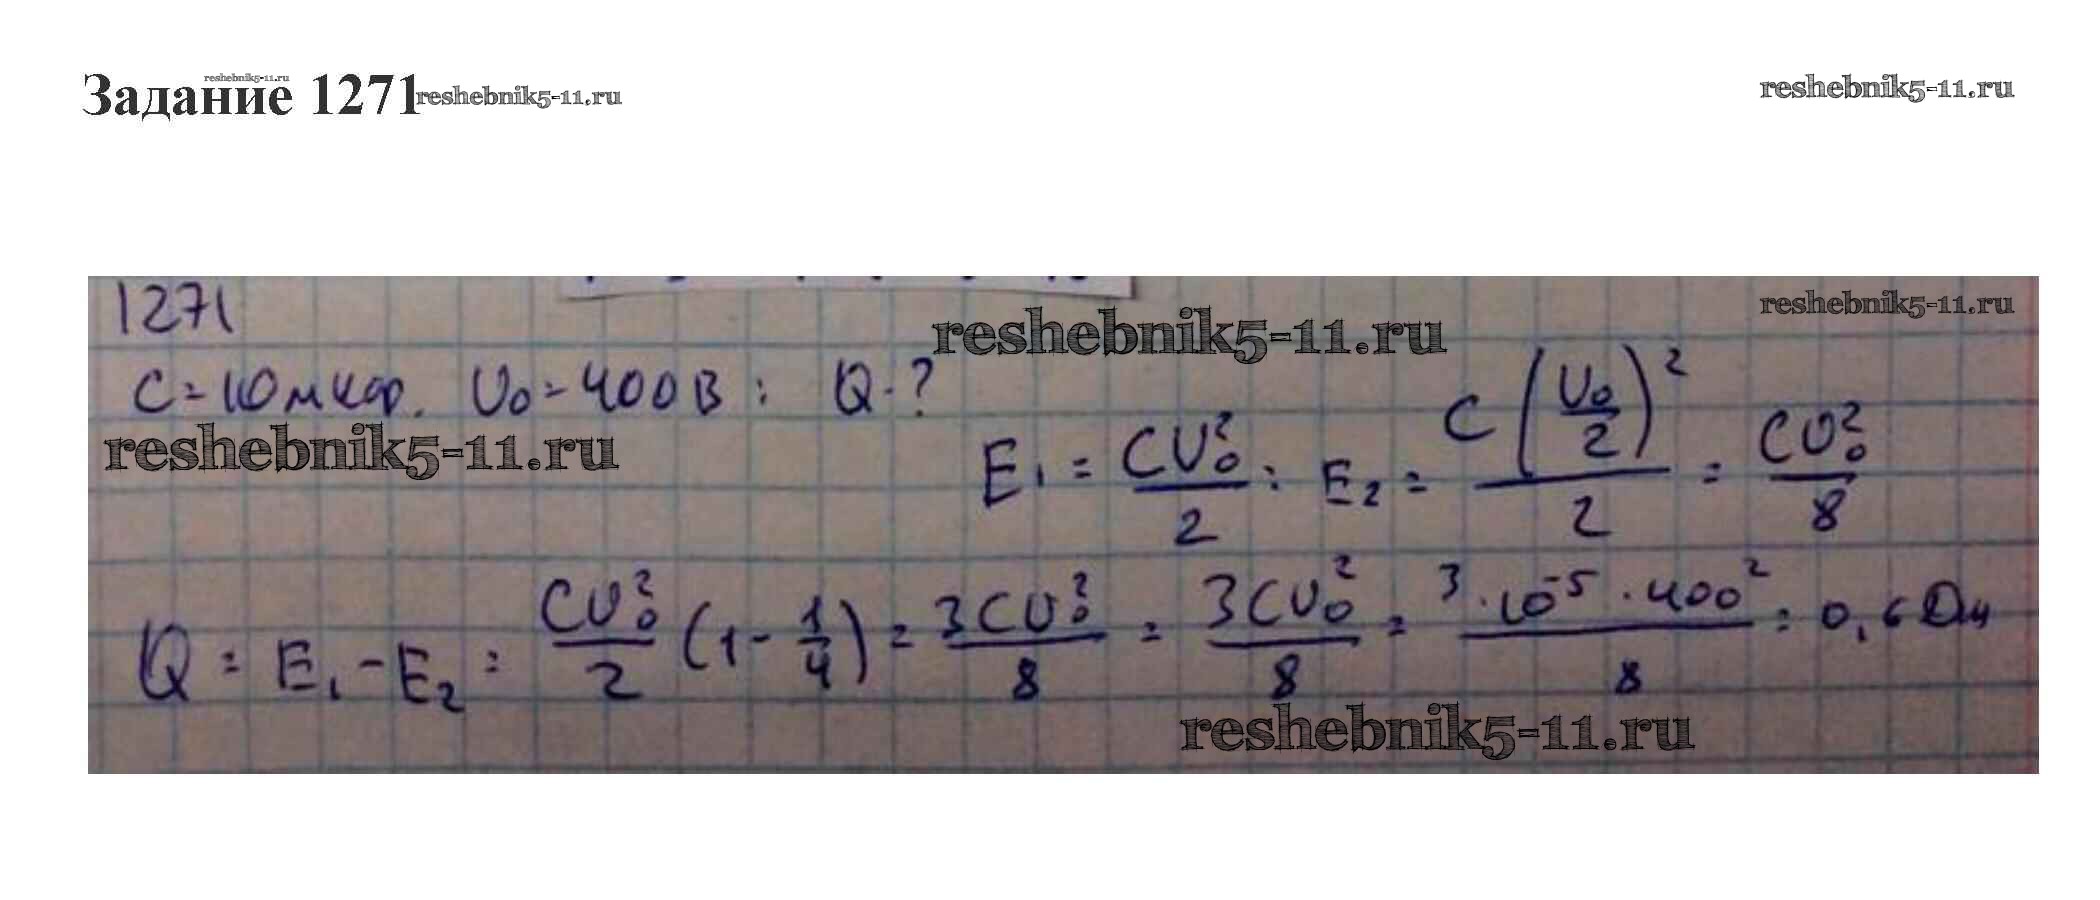 reshebnik5-11.ru
Задание 1271 reshebnik5-11.ru
reshebnik5-11.ru
1271
reshebnik5-11.ru
reshebnik5-11.ru
C = 10 мкф. U₀ = 400 В ; Q - ?
reshebnik5-11.ru
E₁ = CU₀²/2 ; E₂ = C(U₀/2)²/2 = CU₀²/8
Q = E₁ - E₂ = CU₀²/2 (1 - 1/4) = 3CU₀²/8 = 3CU₀²/8 = 3·10⁻⁵·400²/8 = 0,6 Дж
reshebnik5-11.ru